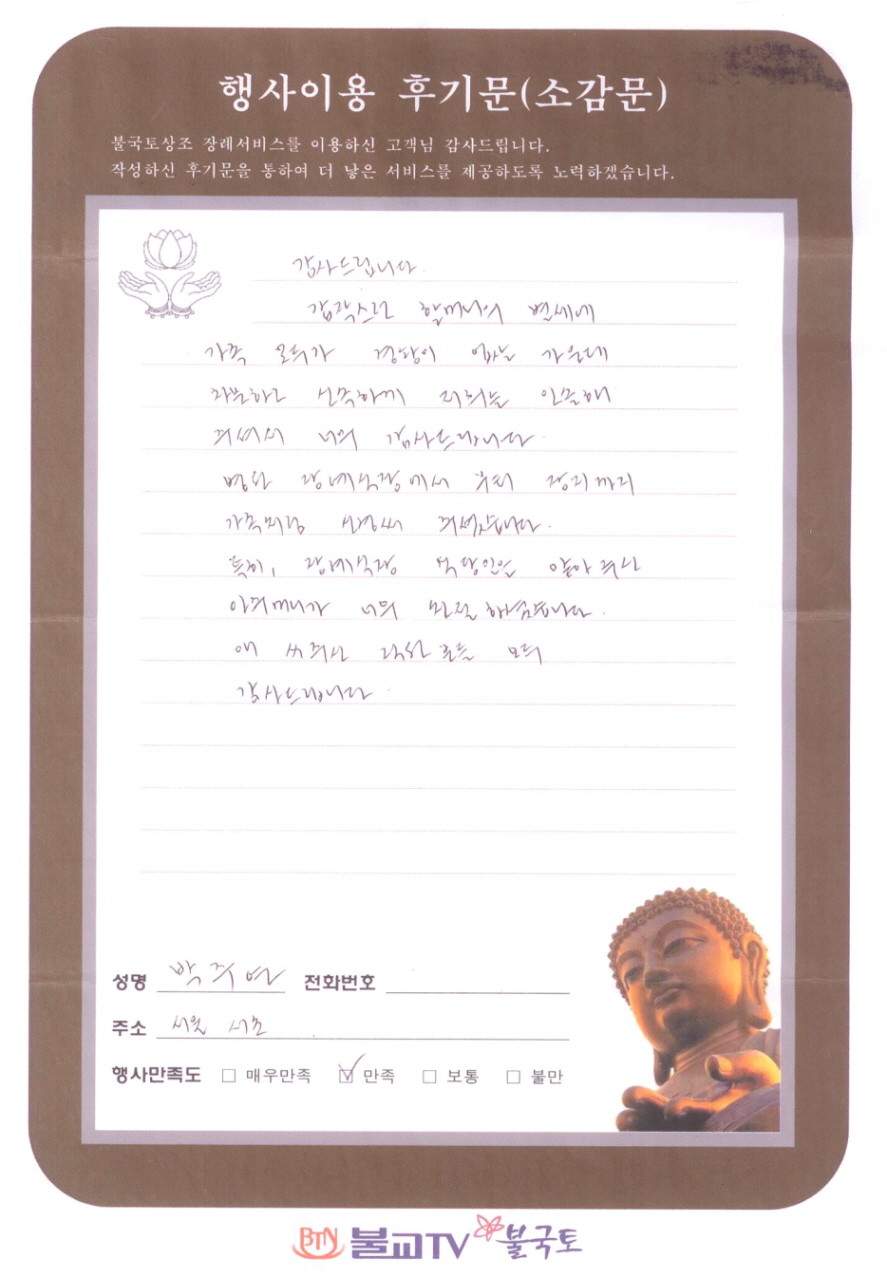 행사이용 후기문(소감문)
불국토상조 장례서비스를 이용하신 고객님 감사드립니다.
작성하신 후기문을 통하여 더 낳은 서비스를 제공하도록 노력하겠습니다.
감사드립니다.
갑작스런 할머니의 별세에
가족 모두가 경황이 없는 가운데
차분하고 신속하게 저희를 인솔해
주셔서 너무 감사드립니다.
장례식장에서 장지까지
가족처럼 신경써 주셨습니다.
특히, 장례식장 식당일을 맡아 주신
아주머니가 너무 친절하셨습니다.
애 써주신 분들 모두
감사드립니다.
성명 박주연 전화번호
주소 서울 서초
행사만족도 □ 매우만족 ☑ 만족 □ 보통 □ 불만
BTN 불교TV 불국토